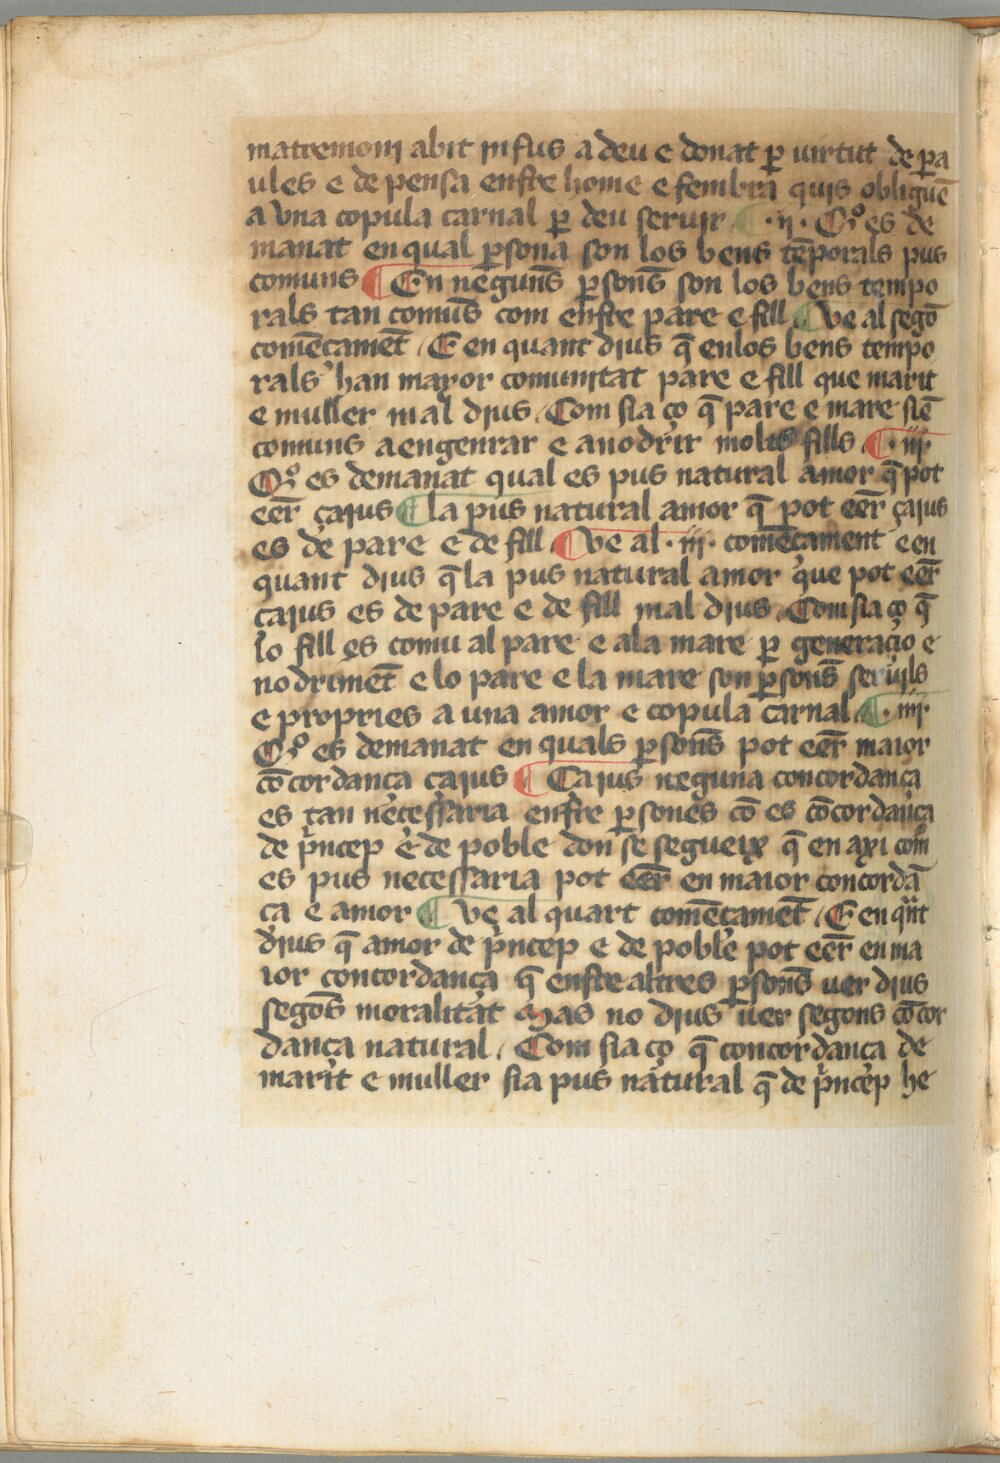 matremoni abit infus a deu e donat ꝑ virtut de ꝑa
ules e de pensa enfre home e fembra quis obliguē
a vna copula carnal ꝑ deu seruir ¶ ·ij· Qº es de
manat en qual ꝑsona son los bens tēporals pus
comuns ¶ En neguns ꝑsons son los bens tempo
rals tan comus com enfre pare e fill ¶ Ve al segō
comēcamēt / E en quant dius q̄ en los bens tempo
rals han maȷor comunitat pare e fill que marit
e muller mal dius / Com sia ço q̄ pare e mare siē
comuns a engenrar e a nodrir molts fills ¶ ·iij·
Qº es demanat qual es pus natural amor q̄ pot
eēr çaius ¶ la pus natural amor q̄ pot eēr çaius
es de pare e de fill ¶ Ve al ·iij· comēcament e en
quant dius q̄ la pus natural amor que pot eēr
çaius es de pare e de fill mal dius / Com sia ço q̄
lo fill es comu al pare e a la mare ꝑ generacio e
nodrimēt e lo pare e la mare son ꝑsons seruils
e propries a una amor e copula carnal ¶ ·iiij·
Qº es demanat en quals ꝑsons pot eēr maior
cōcordança çaius ¶ Caius neguna concordança
es tan necessaria enfre ꝑsones cō es cōcordança
de pncep e de poble don se segueix q̄ en axi com
es pus necessaria pot eēr en maior concordā
ça e amor ¶ Ve al quart comēcamēt / E en qnt
dius q̄ amor de pncep e de poble pot eēr en ma
ior concordança q̄ enfre altres ꝑsons uer dius
segōs moralitat Mas no dius uer segons cōcor
dança natural / Com sia ço q̄ concordança de
marit e muller sia pus natural q̄ de pncep he